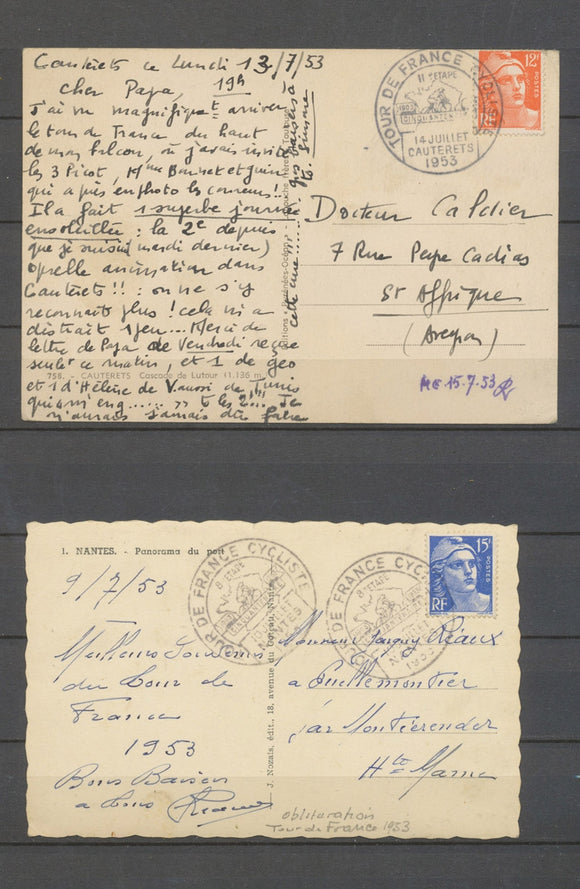 Cauterets ce Lundi 13/7/53
19h
Cher Papa,
J'ai vu magnifiquet arriver
le tour de France du haut
de mon balcon, où j'avais invité
les 3 Picot, Mme Bonnet et
qui a pris en photo les coureurs!!
Il a fait 1 superbe journée
ensoleillée : la 2e depuis
que je suis ici mardi dernier)
Quelle animation dans
Cauterets!! : on ne s'y
reconnaît plus! cela m'a
distrait 1 peu... Merci de
lettre de Papa de Vendredi reçue
seulet ce matin, et 1 de géo
et 1 d'Hélène de Vaussi de Tunis
758. - CAUTERETS Cascade de Lutour (1.136 m.
qui m'eng...... >> ts les 2!!! Je
n'aurais jamais dû faire
cette cure.....
gros baisers à
ts. Simone
TOUR DE FRANCE CYCLISTE
11e ETAPE
1903
CINQUANTENAIRE
14 JUILLET
CAUTERETS
1953
12F
POSTES
RF
Docteur Caldier
7 Rue Pape Cadias
St Affrique
(Aveyron)
ME 15.7.53
1. NANTES. - Panorama du port
9/7/53
Meilleurs Souvenirs
du Tour de
France
1953
Bons Baisers
à tous
J. Nozais, édit., 18, avenue du Coteau, Nantes
TOUR DE FRANCE CYCLISTE
8e ETAPE
CINQUANTENAIRE
10 JUILLET
NANTES
1953
TOUR DE FRANCE CYCLISTE
8e ETAPE
NANTES
1953
15F
POSTES
RF
Monsieur Reaux
à Puellemontier
par Montiérender
Hte Marne
obliteration
Tour de France 1953